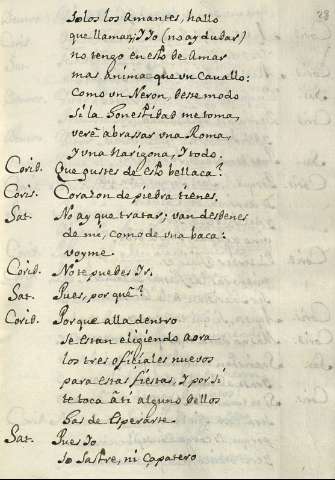 28
Solos los amantes, hallo
que llaman; I Io (no ay dudar)
no tengo en esto de Amar
mas Anima que un Cavallo:
Como un Neron, desse modo
Si la Honestidad me toma,
veré abrassar una Roma,
I una Narizona, I todo.
Corid. Que gustes de esso bellaca?
Coris. Corazon de piedra tienes.
Sat. No ay que tratar; van desdenes
de mi, como de una baca:
voyme.
Corid. No te puedes Ir.
Sat. Pues, por quê?
Corid. Porque alla dentro
se estan eligiendo aora
los tres oficiales nuevos
para estas fiestas, I por si
te toca â ti alguno dellos
has de Esperarte.
Sat. Pues Io
so sastre, ni çapatero